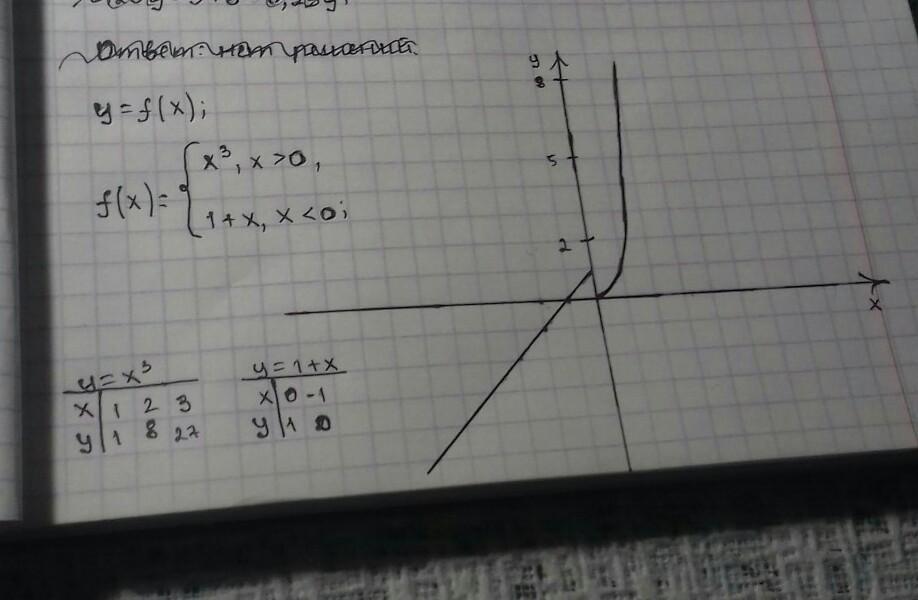 Ответ: нет решений.
y = f(x);
f(x) = { x³, x > 0,
1 + x, x < 0;
y = x³
x | 1 2 3
y | 1 8 27
y = 1 + x
x | 0 -1
y | 1 0
y
8
5
2
x